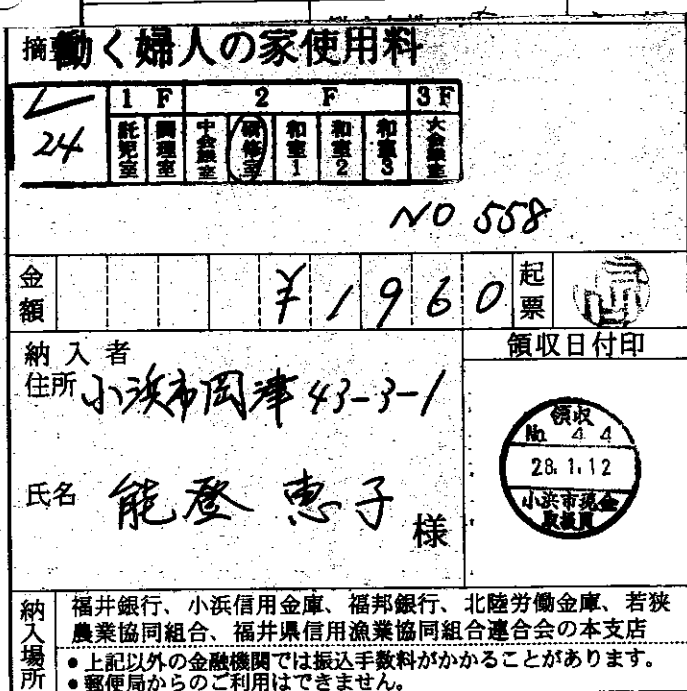 摘要 働く婦人の家使用料
1F 2F 3F
24 託児室 調理室 中会議室 研修室 和室1 和室2 和室3 大会議室
NO 558
金額 ¥1960 起票
納入者 領収日付印
住所 小浜市岡津43-3-1
領収
No. 44
28.1.12
小浜市現金
取扱員
氏名 能登恵子 様
納入場所 福井銀行、小浜信用金庫、福邦銀行、北陸労働金庫、若狭
農業協同組合、福井県信用漁業協同組合連合会の本支店
●上記以外の金融機関では振込手数料がかかることがあります。
●郵便局からのご利用はできません。